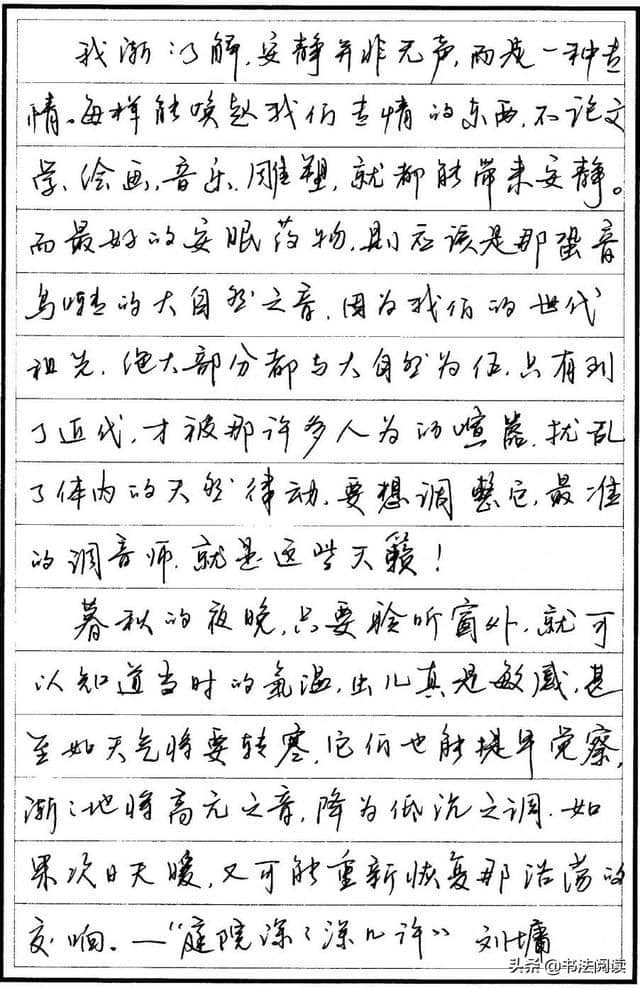 我渐渐了解,安静并非无声,而是一种专
情。每样能唤起我们专情的东西,不论文
学、绘画、音乐、雕塑,就都能带来安静。
而最好的安眠药物,则应该是那蛩音
鸟啭的大自然之音,因为我们的世代
祖先,绝大部分都与大自然为伍,只有到
了近代,才被那许多人为的喧嚣,扰乱
了体内的天然律动,要想调整它,最准
的调音师,就是这些天籁!
暮秋的夜晚,只要聆听窗外,就可
以知道当时的氣温,虫儿真是敏感,甚
至如天气将要转寒,它们也能提早觉察,
渐渐地将高亢之音,降为低沉之调.如
果次日天暖,又可能重新恢复那浩荡的
交响。—“庭院深深深几许” 刘墉
头条@书法阅读